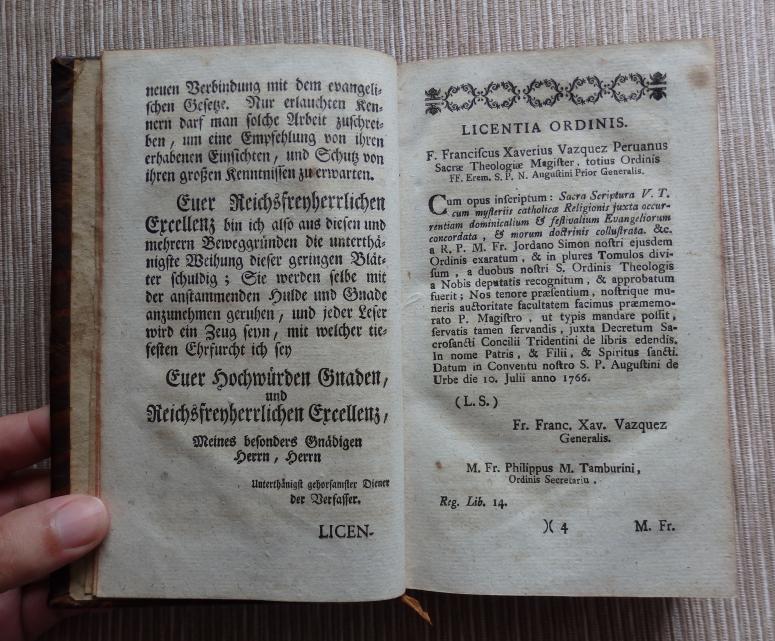 neuen Verbindung mit dem evangeli-
schen Gesetze. Nur erlauchten Ken-
nern darf man solche Arbeit zuschrei-
ben, um eine Empfehlung von ihren
erhabenen Einsichten, und Schutz von
ihren großen Kenntnissen zu erwarten.
Euer Reichsfreyherrlichen
Excellenz bin ich also aus diesen und
mehrern Beweggründen die unterthä-
nigste Weihung dieser geringen Blät-
ter schuldig; Sie werden selbe mit
der anstammenden Hulde und Gnade
anzunehmen geruhen, und jeder Leser
wird ein Zeug seyn, mit welcher tie-
festen Ehrfurcht ich sey
Euer Hochwürden Gnaden,
und
Reichsfreyherrlichen Excellenz,
Meines besonders Gnädigen
Herrn, Herrn
Unterthänigst gehorsamster Diener
der Verfasser.
LICEN-
LICENTIA ORDINIS.
F. Franciſcus Xaverius Vazquez Peruanus
Sacræ Theologiæ Magiſter, totius Ordinis
FF. Erem. S. P. N. Auguſtini Prior Generalis.
Cum opus inſcriptum: Sacra Scriptura V. T.
cum myſteriis catholicæ Religionis juxta occur-
rentiam dominicalium & feſtivalium Evangeliorum
concordata, & morum doctrinis colluſtrata. &c.
a R. P. M. Fr. Jordano Simon noſtri ejusdem
Ordinis exaratum, & in plures Tomulos divi-
ſum, a duobus noſtri S. Ordinis Theologis
a Nobis deputatis recognitum, & approbatum
fuerit; Nos tenore præſentium, noſtrique mu-
neris auctoritate facultatem facimus præmemo-
rato P. Magiſtro, ut typis mandare poſſit,
ſervatis tamen ſervandis, juxta Decretum Sa-
croſancti Concilii Tridentini de libris edendis.
In nome Patris, & Filii, & Spiritus ſancti.
Datum in Conventu noſtro S. P. Auguſtini de
Urbe die 10. Julii anno 1766.
(L. S.)
Fr. Franc. Xav. Vazquez
Generalis.
M. Fr. Philippus M. Tamburini,
Ordinis Secretariu.
Reg. Lib. 14.
)( 4 M. Fr.